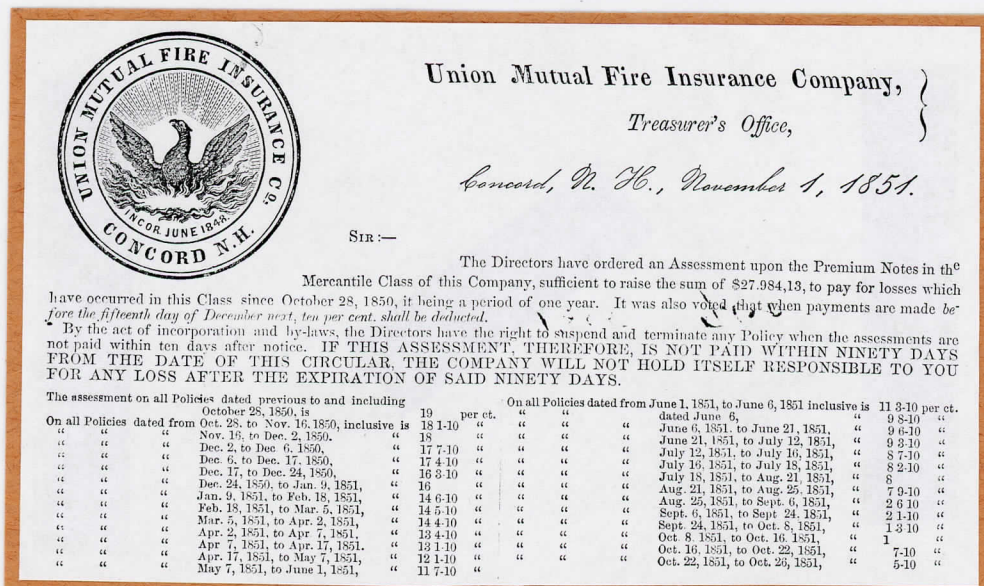 UNION MUTUAL FIRE INSURANCE CO.
INCOR. JUNE 1848.
CONCORD N.H.
Union Mutual Fire Insurance Company,
Treasurer's Office,
Concord, N. H., November 1, 1851.
SIR :—
The Directors have ordered an Assessment upon the Premium Notes in the
Mercantile Class of this Company, sufficient to raise the sum of $27.984,13, to pay for losses which
have occurred in this Class since October 28, 1850, it being a period of one year. It was also voted that when payments are made be-
fore the fifteenth day of December next, ten per cent. shall be deducted.
By the act of incorporation and by-laws, the Directors have the right to suspend and terminate any Policy when the assessments are
not paid within ten days after notice. IF THIS ASSESSMENT, THEREFORE, IS NOT PAID WITHIN NINETY DAYS
FROM THE DATE OF THIS CIRCULAR, THE COMPANY WILL NOT HOLD ITSELF RESPONSIBLE TO YOU
FOR ANY LOSS AFTER THE EXPIRATION OF SAID NINETY DAYS.
The assessment on all Policies dated previous to and including
October 28, 1850, is 19 per ct.
On all Policies dated from Oct. 28. to Nov. 16. 1850, inclusive is 18 1-10 "
" " " Nov. 16, to Dec. 2, 1850. " 18 "
" " " Dec. 2, to Dec 6. 1850, " 17 7-10 "
" " " Dec. 6. to Dec. 17. 1850, " 17 4-10 "
" " " Dec. 17, to Dec. 24, 1850, " 16 3-10 "
" " " Dec. 24, 1850 to Jan. 9, 1851, " 16 "
" " " Jan. 9, 1851, to Feb. 18, 1851, " 14 6-10 "
" " " Feb. 18, 1851, to Mar. 5, 1851, " 14 5-10 "
" " " Mar. 5, 1851, to Apr. 2, 1851, " 14 4-10 "
" " " Apr. 2, 1851, to Apr. 7, 1851, " 13 4-10 "
" " " Apr 7, 1851, to Apr. 17, 1851. " 13 1-10 "
" " " Apr. 17, 1851, to May 7, 1851, " 12 1-10 "
" " " May 7, 1851, to June 1, 1851, " 11 7-10 "
On all Policies dated from June 1, 1851, to June 6, 1851 inclusive is 11 3-10 per ct.
" " dated June 6, " 9 8-10 "
" " " June 6, 1851. to June 21, 1851, " 9 6-10 "
" " " June 21, 1851, to July 12, 1851, " 9 3-10 "
" " " July 12, 1851, to July 16, 1851, " 8 7-10 "
" " " July 16, 1851, to July 18, 1851, " 8 2-10 "
" " " July 18, 1851, to Aug. 21, 1851, " 8 "
" " " Aug. 21, 1851, to Aug. 25, 1851, " 7 9-10 "
" " " Aug. 25, 1851, to Sept. 6, 1851, " 2 6 10 "
" " " Sept. 6, 1851, to Sept 24. 1851, " 2 1-10 "
" " " Sept. 24, 1851, to Oct. 8, 1851, " 1 3 10 "
" " " Oct. 8. 1851, to Oct. 16. 1851, " 1 "
" " " Oct. 16, 1851, to Oct. 22, 1851, " 7-10 "
" " " Oct. 22, 1851, to Oct. 26, 1851, " 5-10 "